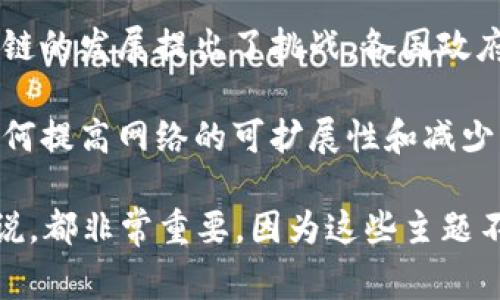 链的发展提出了挑战，各国政府
What Happened to Bitcoin
何提高网络的可扩展性和减少
说，都非常重要，因为这些主题不
9